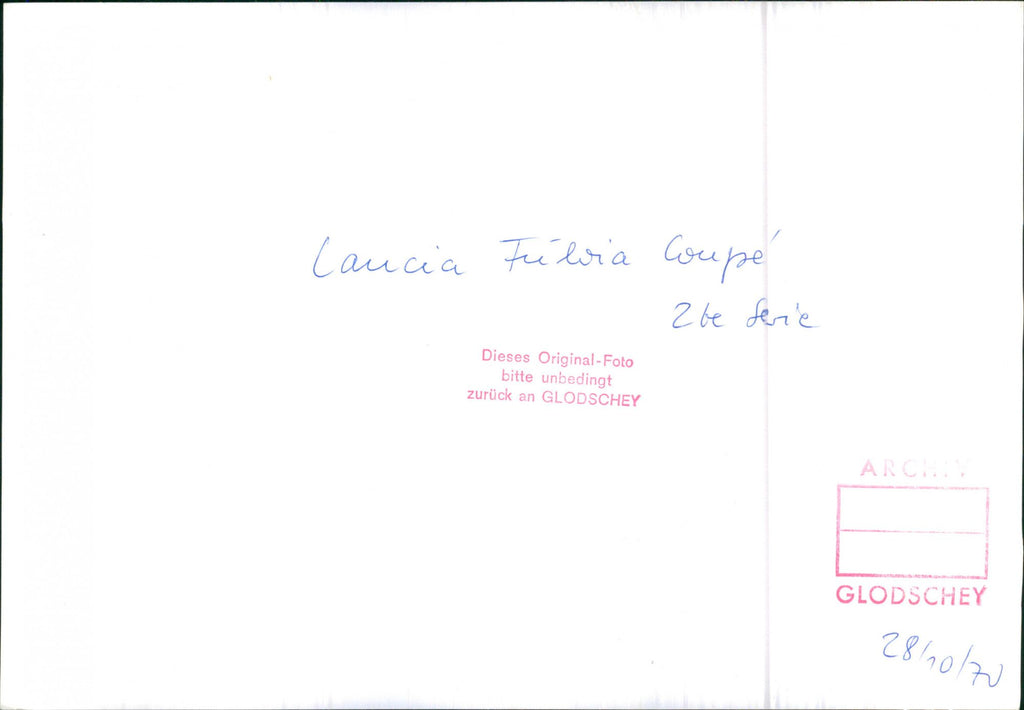 Lancia Fulvia Coupé
2te Serie
Dieses Original-Foto
bitte unbedingt
zurück an GLODSCHEY
ARCHIV
GLODSCHEY
28/10/70